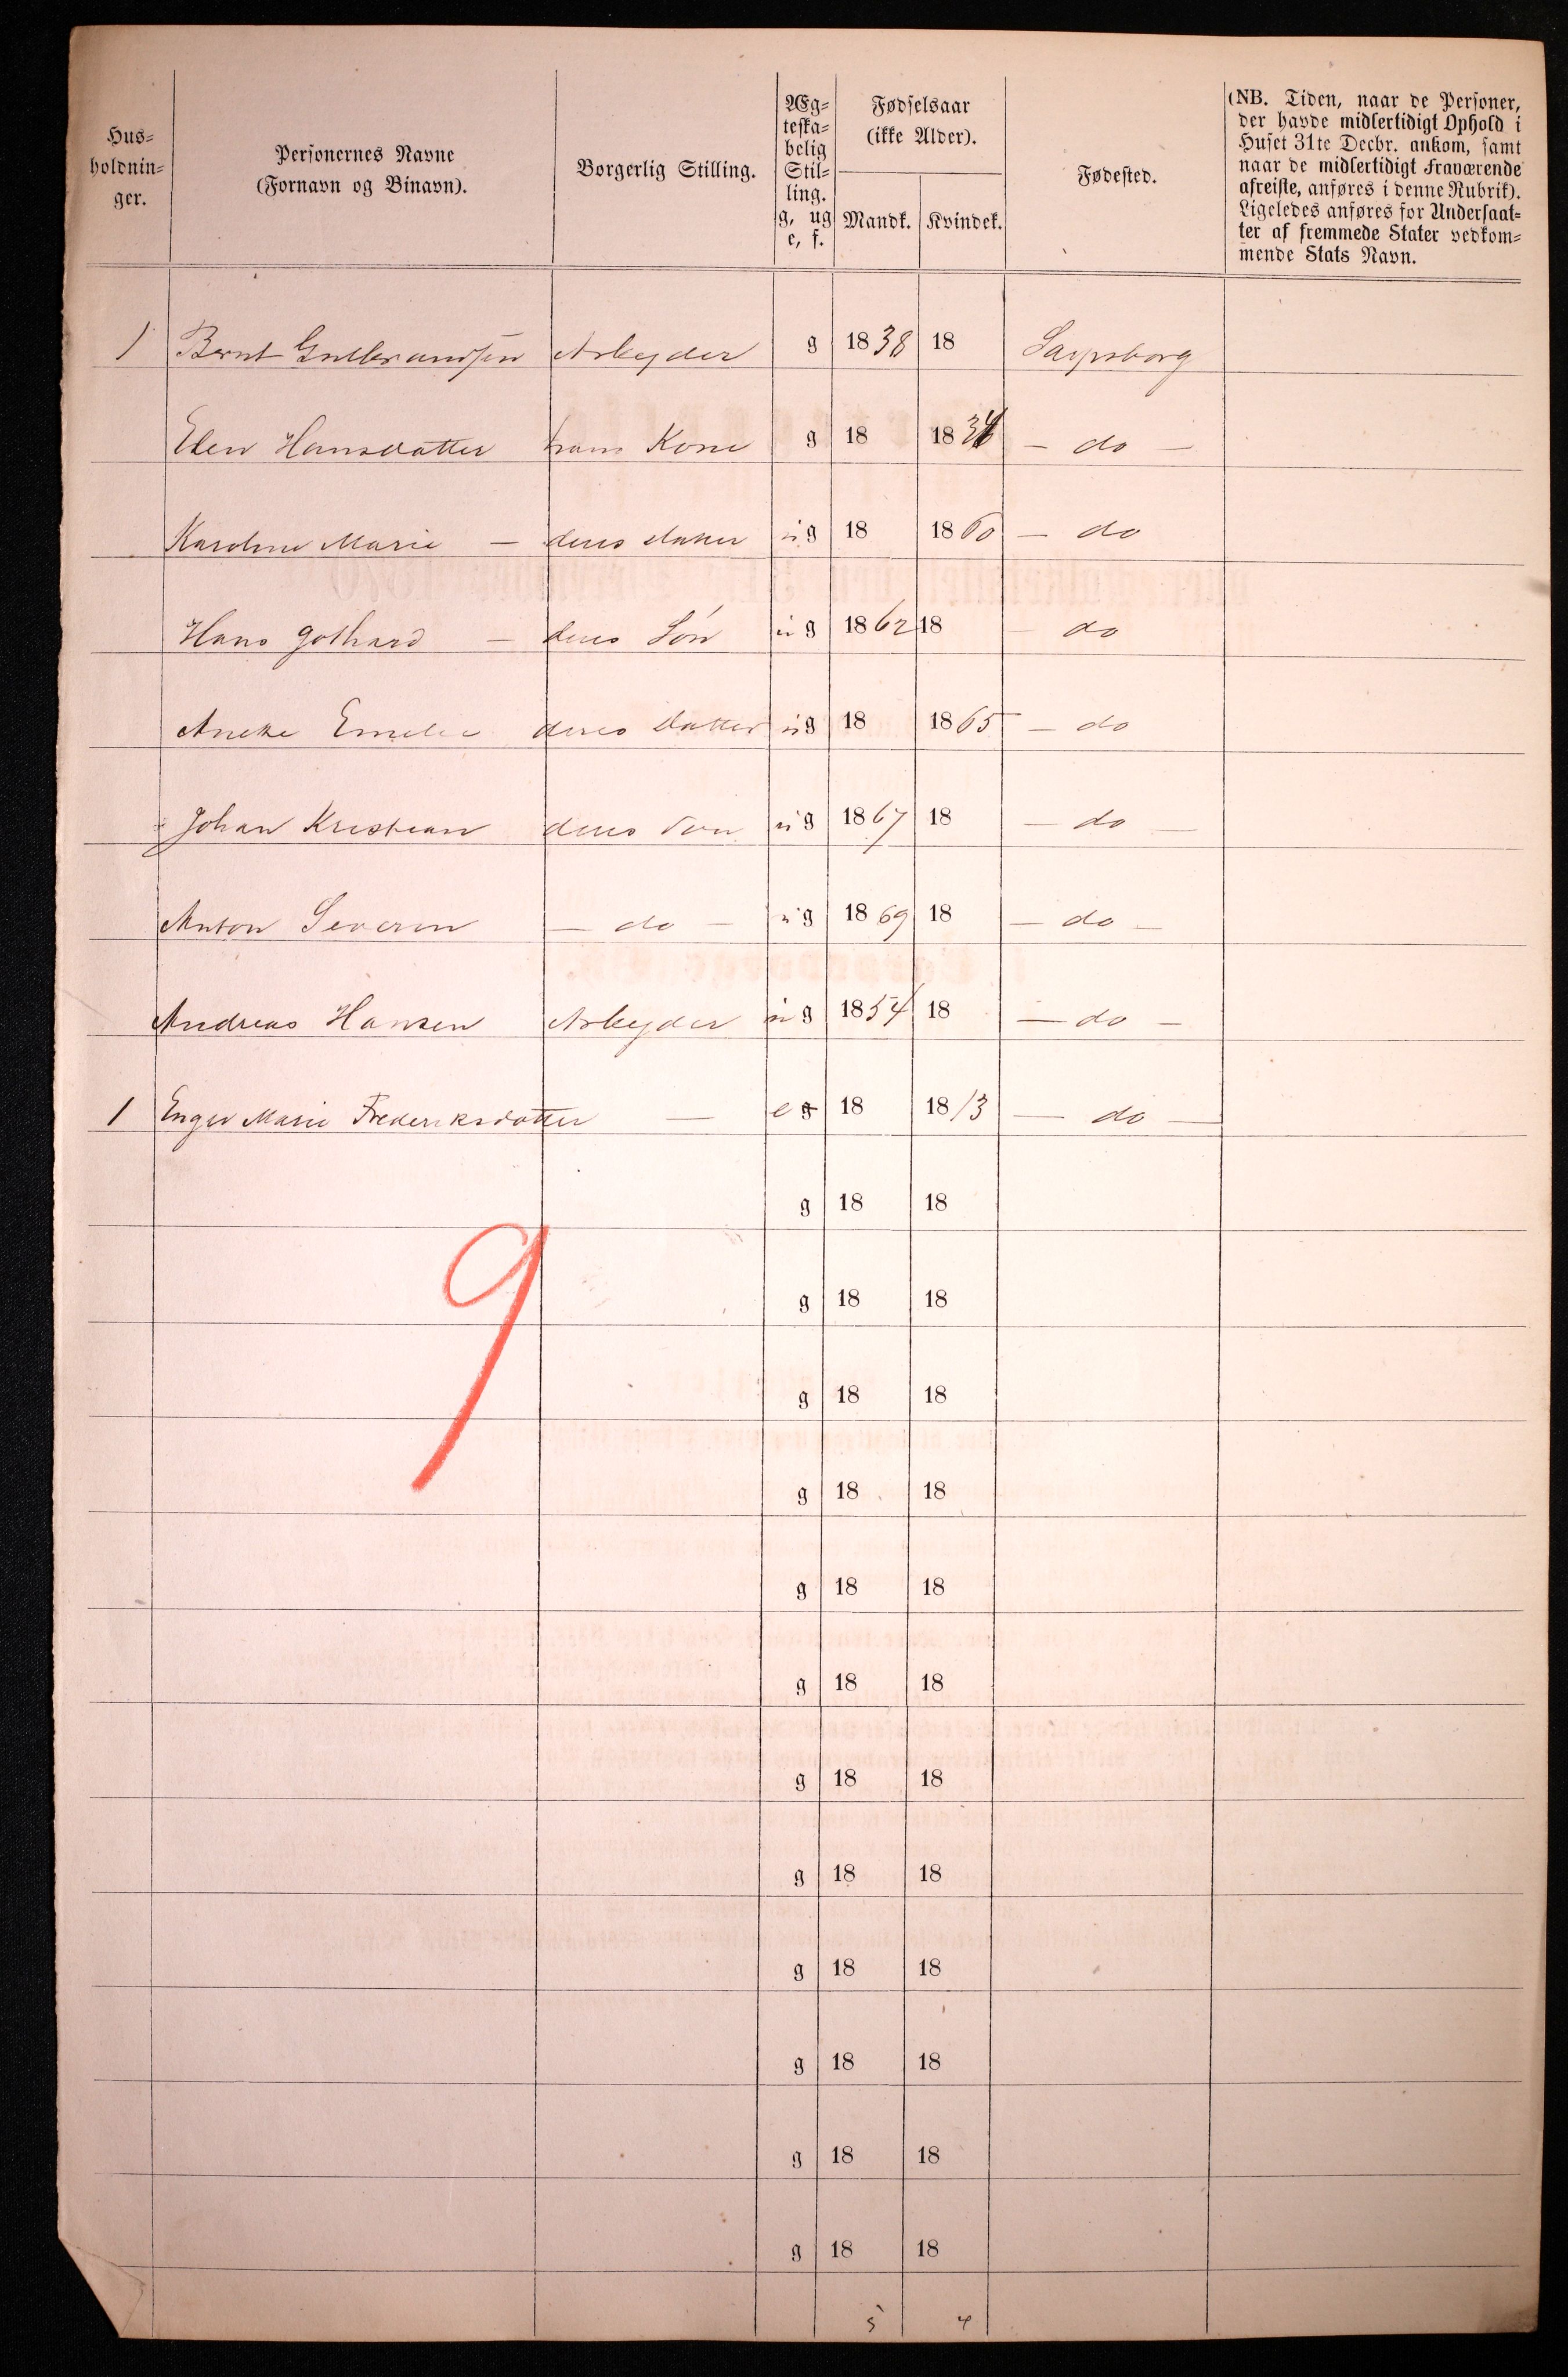 Hus-
holdnin-
ger.
Personernes Navne
(Fornavn og Binavn).
Borgerlig Stilling.
Æg-
teska-
belig
Stil-
ling.
g, ug
e, f.
Fødselsaar
(ikke Alder).
Mandk. Kvindek.
Fødested.
(NB. Tiden, naar de Personer,
der havde midlertidigt Ophold i
Huset 31te Decbr. ankom, samt
naar de midlertidigt Fraværende
afreiste, anføres i denne Rubrik).
Ligeledes anføres for Undersaat-
ter af fremmede Stater vedkom-
mende Stats Navn.
1 Bernt Gulbrandsen Arbeyder g 1838 18 Sarpsborg
Elen Hansdatter hans Kone g 18 1834 — do —
Karoline Marie — deres datter ug 18 1860 — do
Hans Gothard — deres Sön ug 1862 18 — do
Aneke Emelie deres datter ug 18 1865 — do
Johan Kristian deres Søn ug 1867 18 — do —
Anton Severin — do — ug 1869 18 — do —
Andreas Hansen Arbeyder ug 1854 18 — do —
1 Enger Marie Frederiksdatter — e g 18 1813 — do —
g 18 18
g 18 18
9
g 18 18
g 18 18
g 18 18
g 18 18
g 18 18
g 18 18
g 18 18
g 18 18
g 18 18
g 18 18
5 4